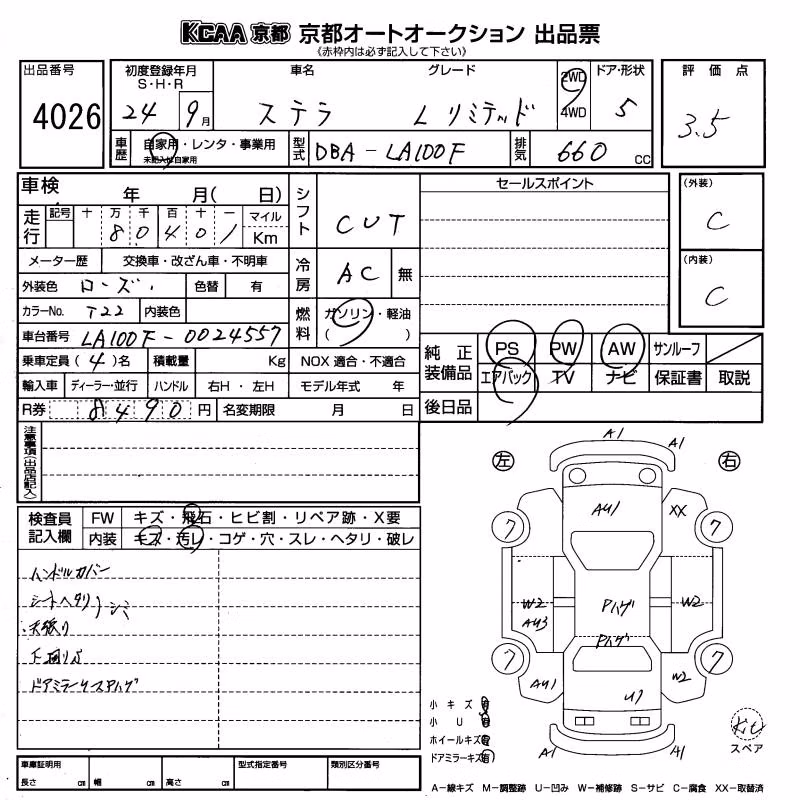 KCAA 京都 京都オートオークション 出品票
《赤枠内は必ず記入して下さい》
出品番号
4026
初度登録年月
S・H・R
24 9月
車名
ステラ
グレード
L リミテッド
2WD
4WD
ドア・形状
5
評価点
3.5
車歴
自家用・レンタ・事業用
未記入は自家用
型式
DBA-LA100F
排気
660 CC
車検 年 月( 日)
走行
記号 十 万 千 百 十 一
8 0 4 0 1
マイル
Km
シフト
CVT
メーター歴 交換車・改ざん車・不明車
冷房
AC 無
外装色 ローズ
色替 有
カラーNo. T22 内装色
燃料
ガソリン・軽油
( )
車台番号 LA100F-0024557
乗車定員(4)名 積載量 Kg NOX 適合・不適合
輸入車 ディーラー・並行 ハンドル 右H・左H モデル年式 年
R券 8490円 名変期限 月 日
セールスポイント
(外装)
C
(内装)
C
純正装備品
PS PW AW サンルーフ
エアバック TV ナビ 保証書 取説
後日品
注意事項(出品店記入)
検査員記入欄
FW キズ・飛石・ヒビ割・リペア跡・X要
内装 キズ・汚レ・コゲ・穴・スレ・ヘタリ・破レ
ハンドルカバー
シートヘタリ シミ
天張り
下廻りS
ドアミラーリスPハゲ
左 右
A1 A1
AU1 XX
7 7
W2 W2
AU3
Pハゲ
Pハゲ
7 7
AU1 W2
U1
A1 A1
小キズ有
小U有
ホイールキズ有
ドアミラーキズ有
スペア
車庫証明用 型式指定番号 類別区分番号
長さ cm 幅 cm 高さ cm
A-線キズ M-調整跡 U-凹み W-補修跡 S-サビ C-腐食 XX-取替済